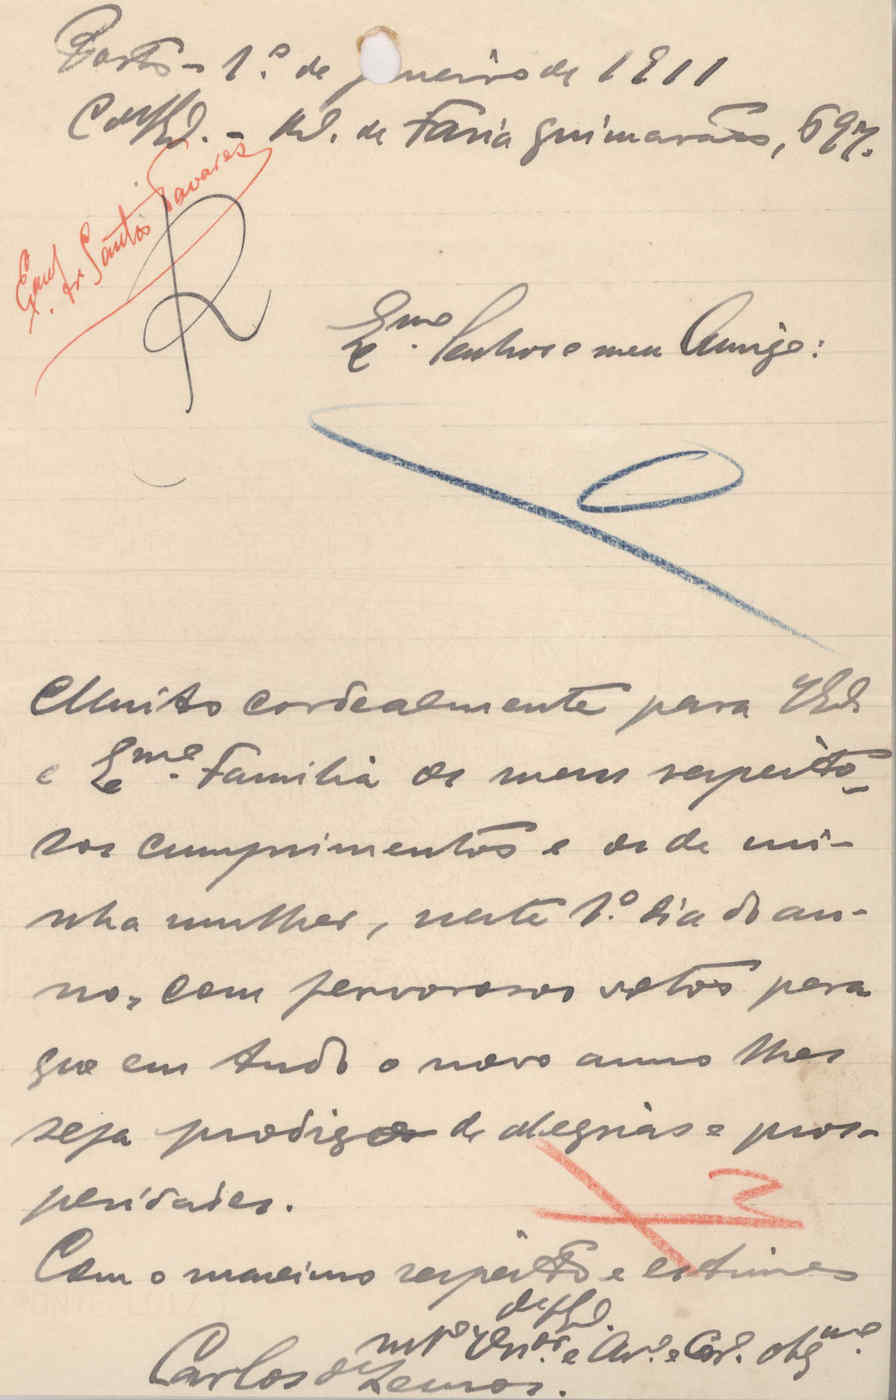 Porto - 1.º de janeiro de 1911
C. de V. Ex.ª - R. de Faria Guimarães, 697.
Ex.mo Sr. Santos Tavares
Ex.mo Senhor e meu Amigo:
Muito cordealmente para V. Ex.ª
e Ex.ma Familia os meus respeito-
sos cumprimentos e os de mi-
nha mulher, neste 1.º dia do an-
no, com fervorosos votos para
que em tudo o novo anno lhes
seja prodigo de alegrias e pros-
peridades.
Com o maximo respeito e estima
de V. Ex.ª
m.to e obg.mo
Carlos de Lemos.